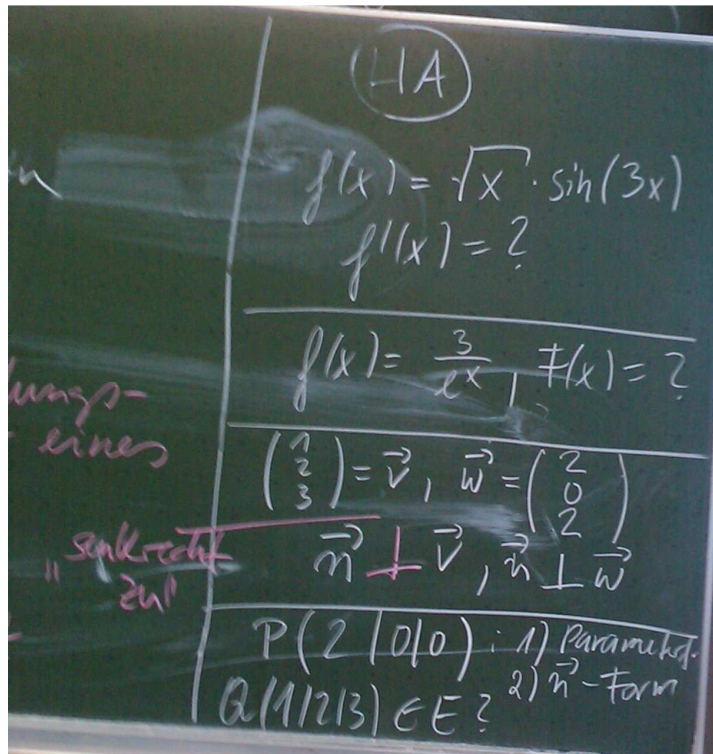 HA
f(x) = √x · sin(3x)
f'(x) = ?
f(x) = 3/e^x , F(x) = ?
(1 2 3) = v⃗ , w⃗ = (2 0 2)
n⃗ ⊥ v⃗ , n⃗ ⊥ w⃗
P(2|0|0) : 1) Paramet.
2) n⃗ - Form
Q(1|2|3) ∈ E ?
eines
"senkrecht
zu"